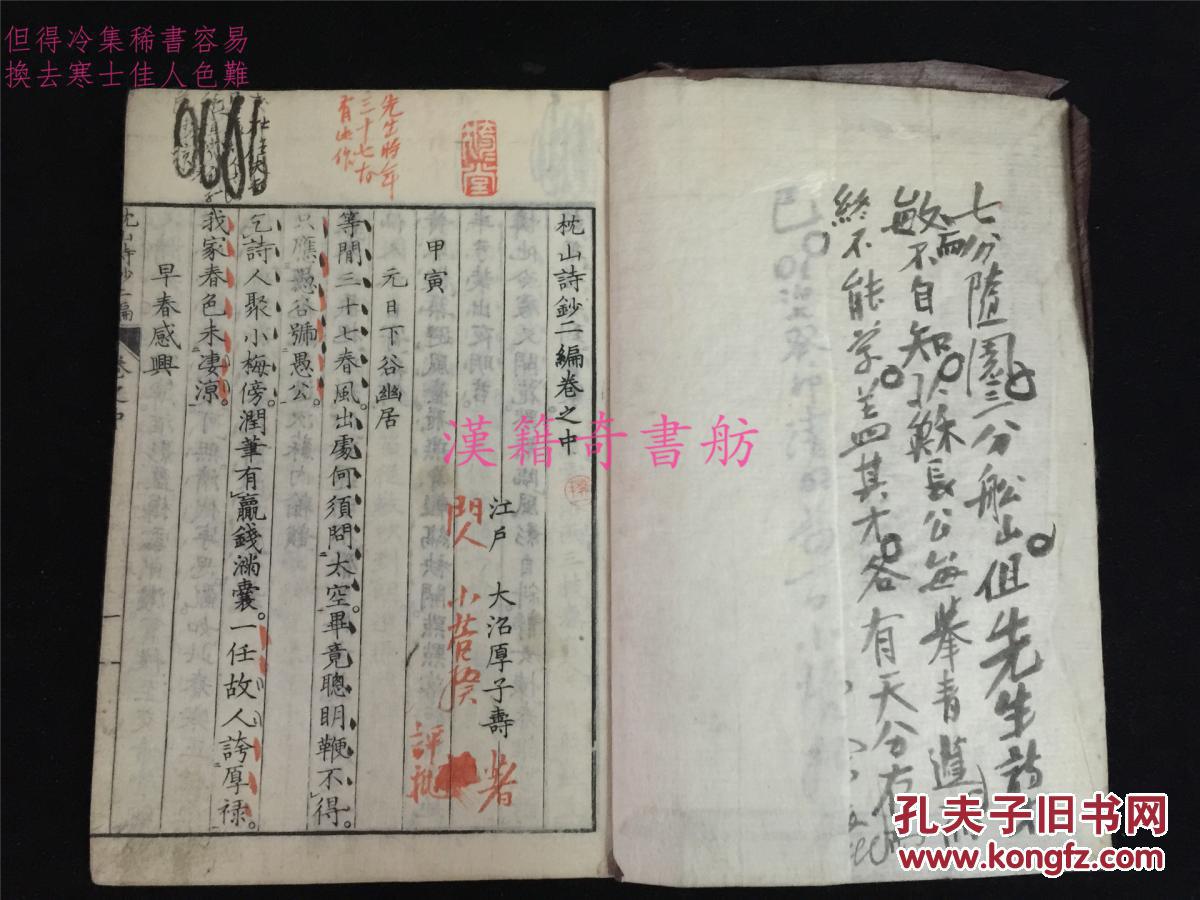 但得冷集稀書容易
換去寒士佳人色難
七分隨園三分船山但先生詩
敏而不自知 以蘇長公每舉青蓮
終不能学 盖其才各有天分
先生時年
三十七故
有此作
枕山詩鈔二編卷之中
江戶 大沼厚子壽
著
門人 小
評批
甲寅
元日下谷幽居
等閒三十七春風。出處何須問太空。畢竟聰明鞭不得。
只應愚谷號愚公。
乞詩人聚小梅傍。潤筆有贏錢滿囊。一任故人誇厚祿。
我家春色未凄涼。
早春感興
枕山詩鈔二編 卷之中 一
漢籍奇書舫
孔夫子旧书网
www.kongfz.com